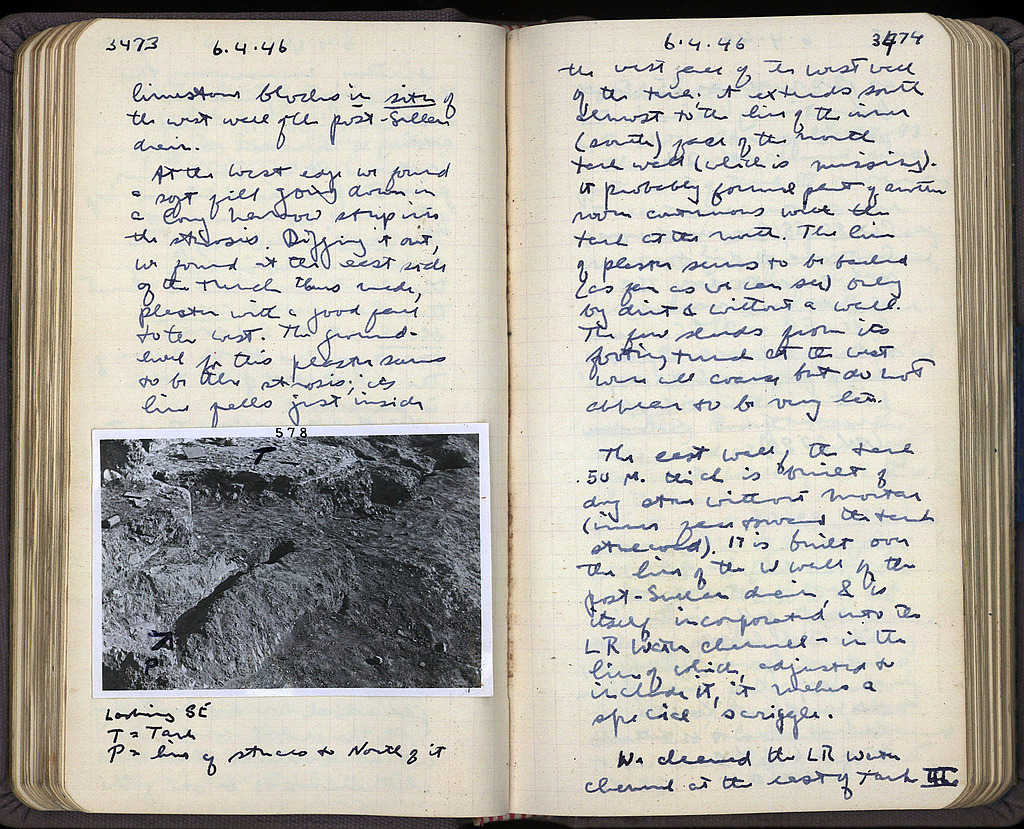 3473 6.4.46
limestone blocks in situ of
the west wall of the post-Sullan
drain.
At the west edge we found
a soft fill going down in
a long narrow strip into
the stereosis. Digging it out,
we found at the east side
of the trench thus made,
plaster with a good face
to the west. The ground-
level for this plaster seems
to be the stereosis; its
line falls just inside
578
T
P
Looking SE
T = Tank
P = line of stucco to North of it
6.4.46 3474
the west face of the west wall
of the tank; it extends south
almost to the line of the inner
(south) face of the north
tank wall (which is missing).
It probably formed part of another
room continuous with the
tank at the north. The line
of plaster seems to be backed
(as far as we can see) only
by dirt & without a wall.
The few sherds from its
footing trench at the west
were all coarse but do not
appear to be very late.
The east wall, the tank
.50 M. thick is built of
dry stone without mortar
(inner face toward the tank
stuccoed). It is built over
the line of the W wall of the
post-Sullan drain, & is
itself incorporated into the
LR water channel - in the
line of which, adjusted to
include it, it makes a
special squiggle.
We cleaned the LR water
channel at the east of Tank III